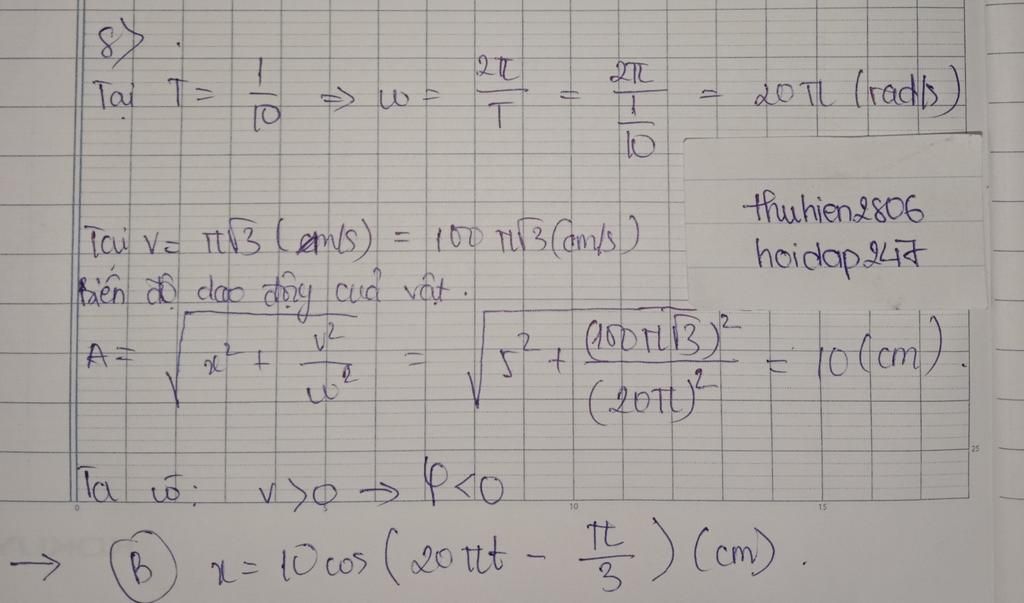 8) .
Tại T = 1/10 => ω = 2π/T = 2π/(1/10) = 20π (rad/s)
thuhien2806
hoidap247
Tại v = π√3 (m/s) = 100π√3 (cm/s)
Biến độ dao động của vật.
A = √(x² + v²/ω²) = √(5² + (100π√3)²/(20π)²) = 10 (cm).
Ta có: v > 0 → φ < 0
→ (B) x = 10cos(20πt - π/3) (cm).
5
10
15
25